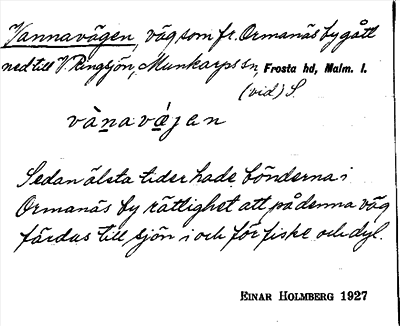 Vannavägen, väg som fr. Ormanäs by gått
ned till V. Ringsjön, Munkarps sn, Frosta hd, Malm. l.
(vid) S.
vànavǽjen
Sedan älsta tider hade bönderna i
Ormanäs by rättighet att på denna väg
färdas till sjön i och för fiske och dyl.
EINAR HOLMBERG 1927